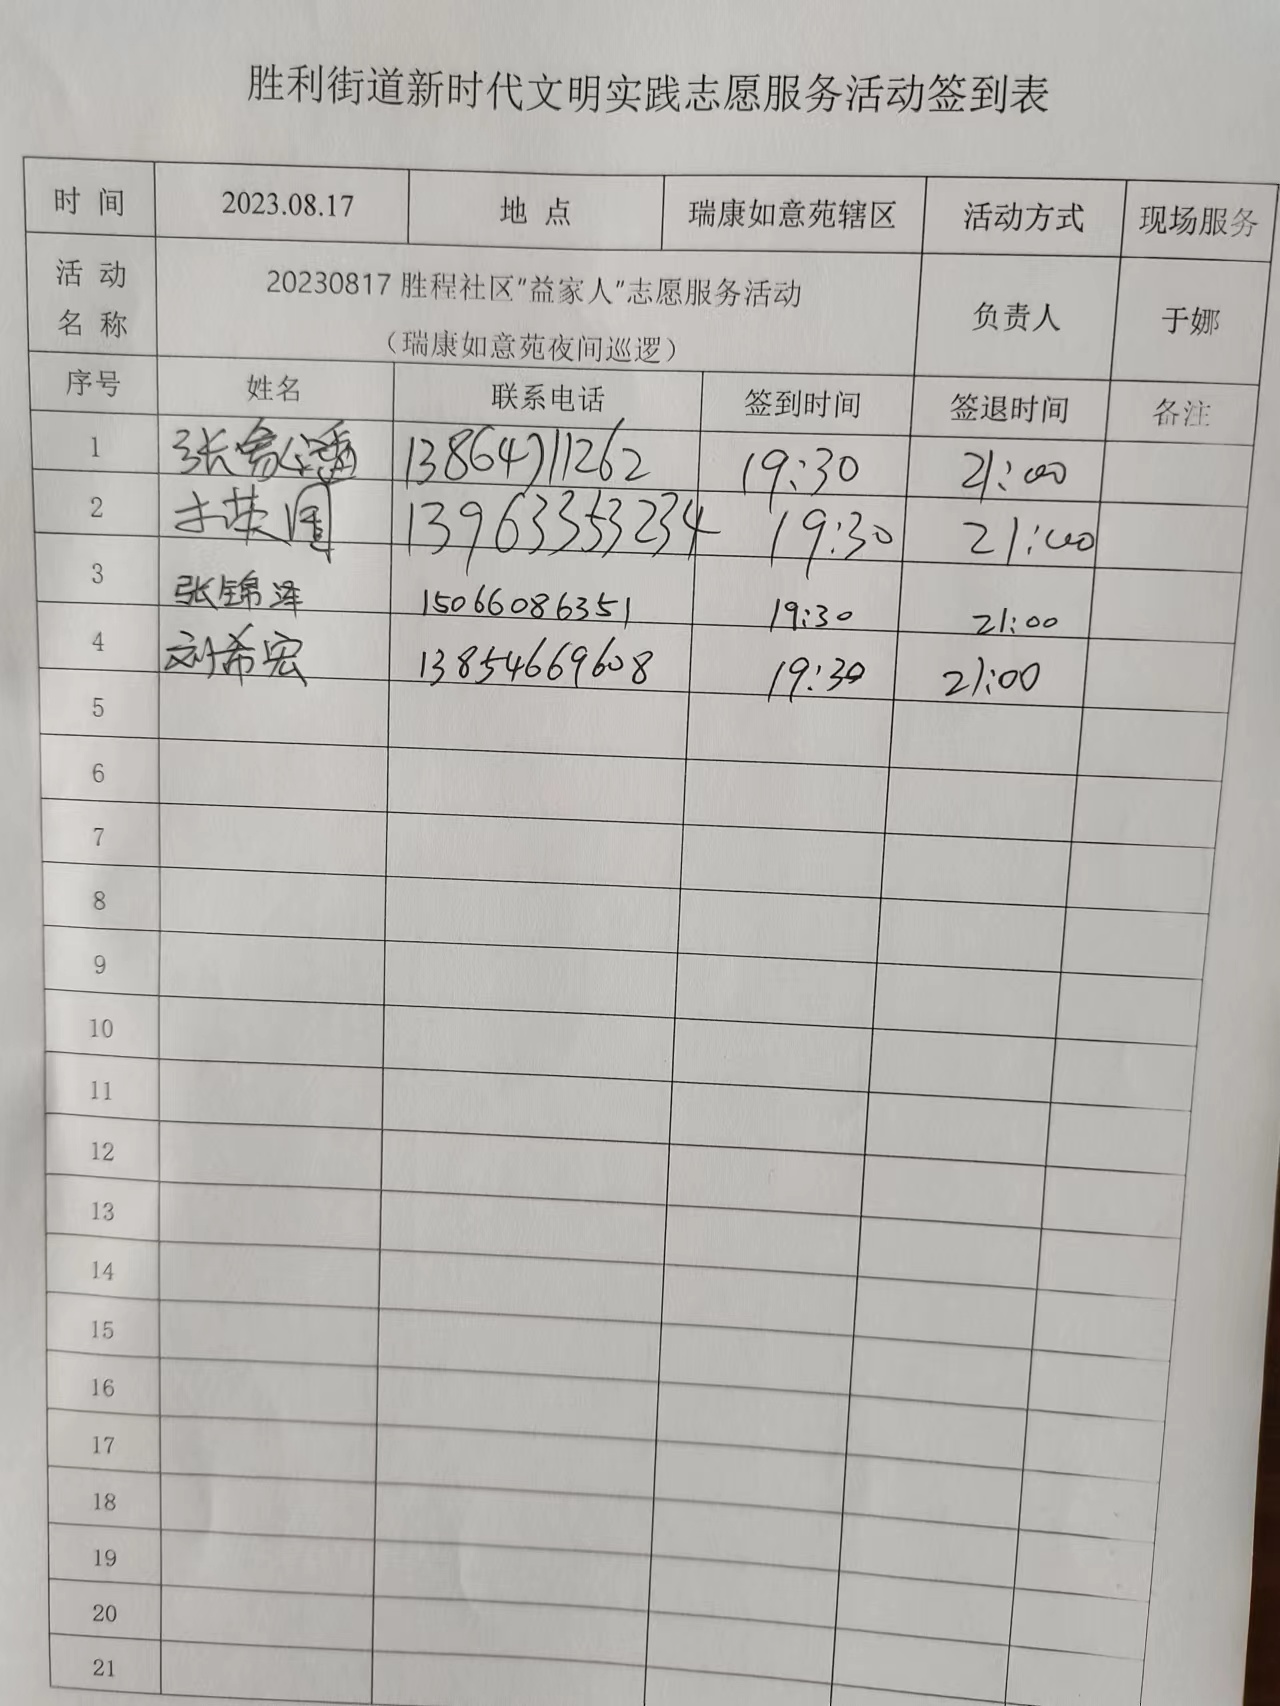 胜利街道新时代文明实践志愿服务活动签到表
时 间 2023.08.17 地 点 瑞康如意苑辖区 活动方式 现场服务
活 动 名 称 20230817 胜程社区“益家人”志愿服务活动 负责人 于娜
（瑞康如意苑夜间巡逻）
序号 姓名 联系电话 签到时间 签退时间 备注
1 张 13864711262 19:30 21:00
2 13963353234 19:30 21:00
3 张锦泽 15066086351 19:30 21:00
4 刘希宏 13854669608 19:30 21:00
5
6
7
8
9
10
11
12
13
14
15
16
17
18
19
20
21